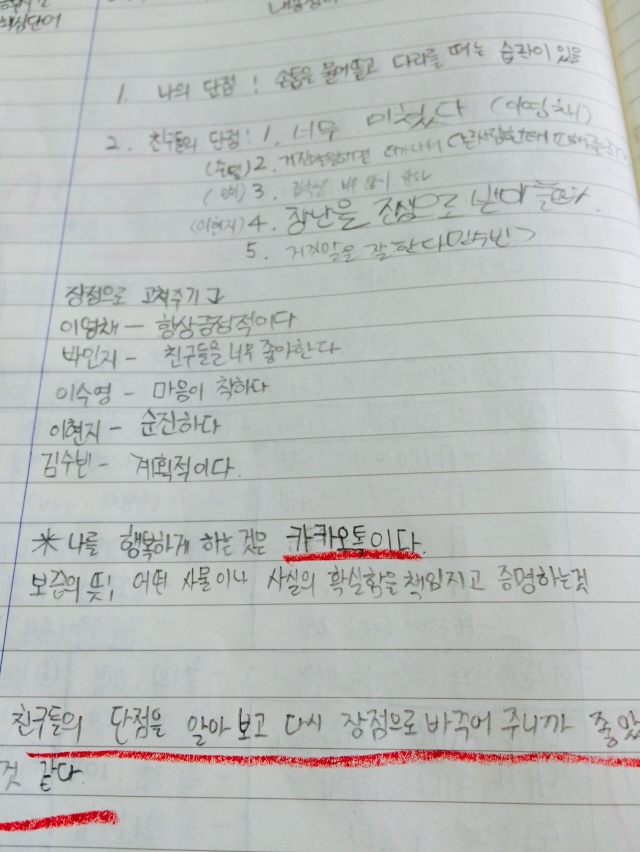 핵심단어
1. 나의 단점 : 손톱을 물어뜯고 다리를 떠는 습관이 있음
2. 친구들의 단점 : 1. 너무 미쳤다 (이영채)
(수영) 2.
3. 너무 많이 한다
(이현지) 4. 장난을 진심으로 받아들인다.
5. 거짓말을 잘한다
장점으로 고쳐주기
이영채 - 항상긍정적이다
박민지 - 친구들을 너무 좋아한다
이수영 - 마음이 착하다
이현지 - 순진하다
김수빈 - 계획적이다.
* 나를 행복하게 하는 것은 캬카오톡이다.
보증의 뜻; 어떤 사물이나 사실의 확실함을 책임지고 증명하는것
친구들의 단점을 알아보고 다시 장점으로 바꾸어 주니까 좋았
것 같다.